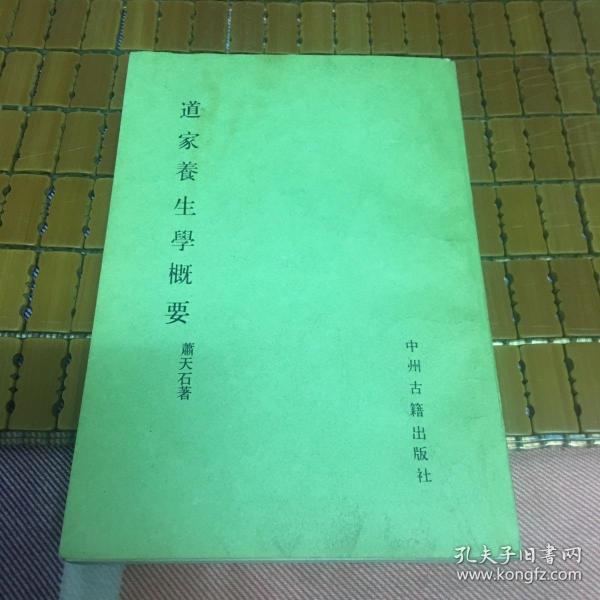 道家養生學概要
蕭天石著
中州古籍出版社
孔夫子旧書网
www.kongfz.com